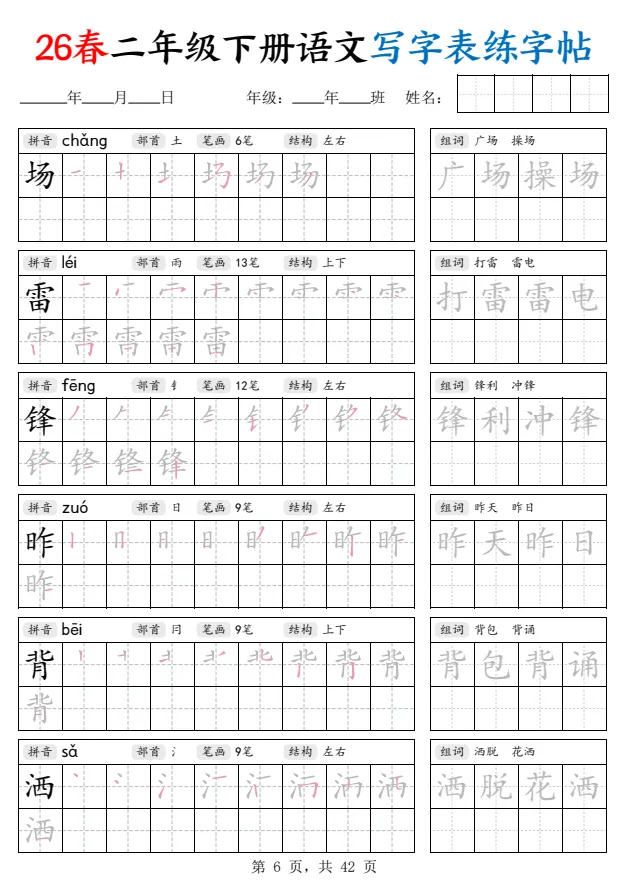 26春二年级下册语文写字表练字帖
____年____月____日 年级：____年____班 姓名：
拼音 chǎng 部首 土 笔画 6笔 结构 左右 组词 广场 操场
场 广场操场
拼音 léi 部首 雨 笔画 13笔 结构 上下 组词 打雷 雷电
雷 打雷雷电
拼音 fēng 部首 钅 笔画 12笔 结构 左右 组词 锋利 冲锋
锋 锋利冲锋
拼音 zuó 部首 日 笔画 9笔 结构 左右 组词 昨天 昨日
昨 昨天昨日
昨
拼音 bēi 部首 冃 笔画 9笔 结构 上下 组词 背包 背诵
背 背包背诵
背
拼音 sǎ 部首 氵 笔画 9笔 结构 左右 组词 洒脱 花洒
洒 洒脱花洒
洒
第 6 页，共 42 页